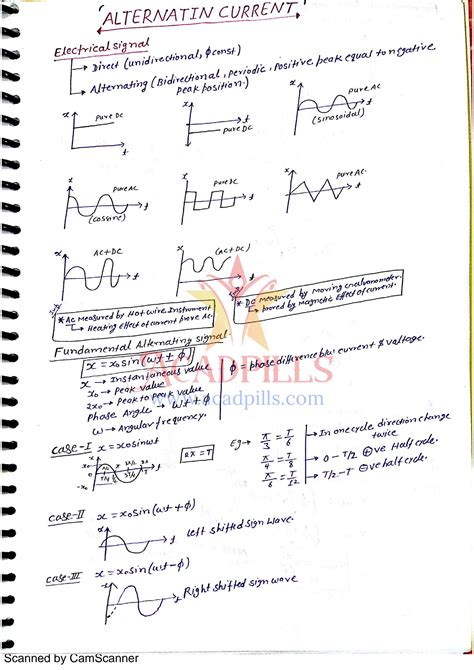 ALTERNATIN CURRENT
Electrical signal
→ Direct (unidirectional, ϕ const)
→ Alternating (Bidirectional, Periodic, Positive peak equal to negative
peak position)
x
pure DC
t
x
pure DC
t
x
pure AC
t
(sinosoidal)
x
pure AC
t
(cossine)
x
pure DC
t
pure AC
t
x
AC+DC
t
x
(AC+DC)
t
* AC measured by Hot wire Instrument
↳ Heating effect of current
* DC measured by moving
by Magnetic effect of current.
Fundamental Alternating signal
x = x₀ sin(ωt + ϕ)
x → Instantaneous value
x₀ → Peak value
2x₀ → Peak to peak value
Phase Angle → ωt + ϕ
ω → Angular frequency.
ϕ = phase difference b/w current & voltage.
ACADPILLS
www.acadpills.com
case-I x = x₀ sin ωt
x₀
-x₀
T/4
T/2
t
2π = T
Eg →
π/3 = T/6
π/4 = T/8
π/6 = T/12
→ In one cycle direction change
twice
→ 0 - T/2 ⊕ve Half cycle.
→ T/2 - T ⊖ve half cycle.
case-II x = x₀ sin(ωt + ϕ)
Left shifted sign wave.
case-III x = x₀ sin(ωt - ϕ)
Right shifted sign wave
Scanned by CamScanner